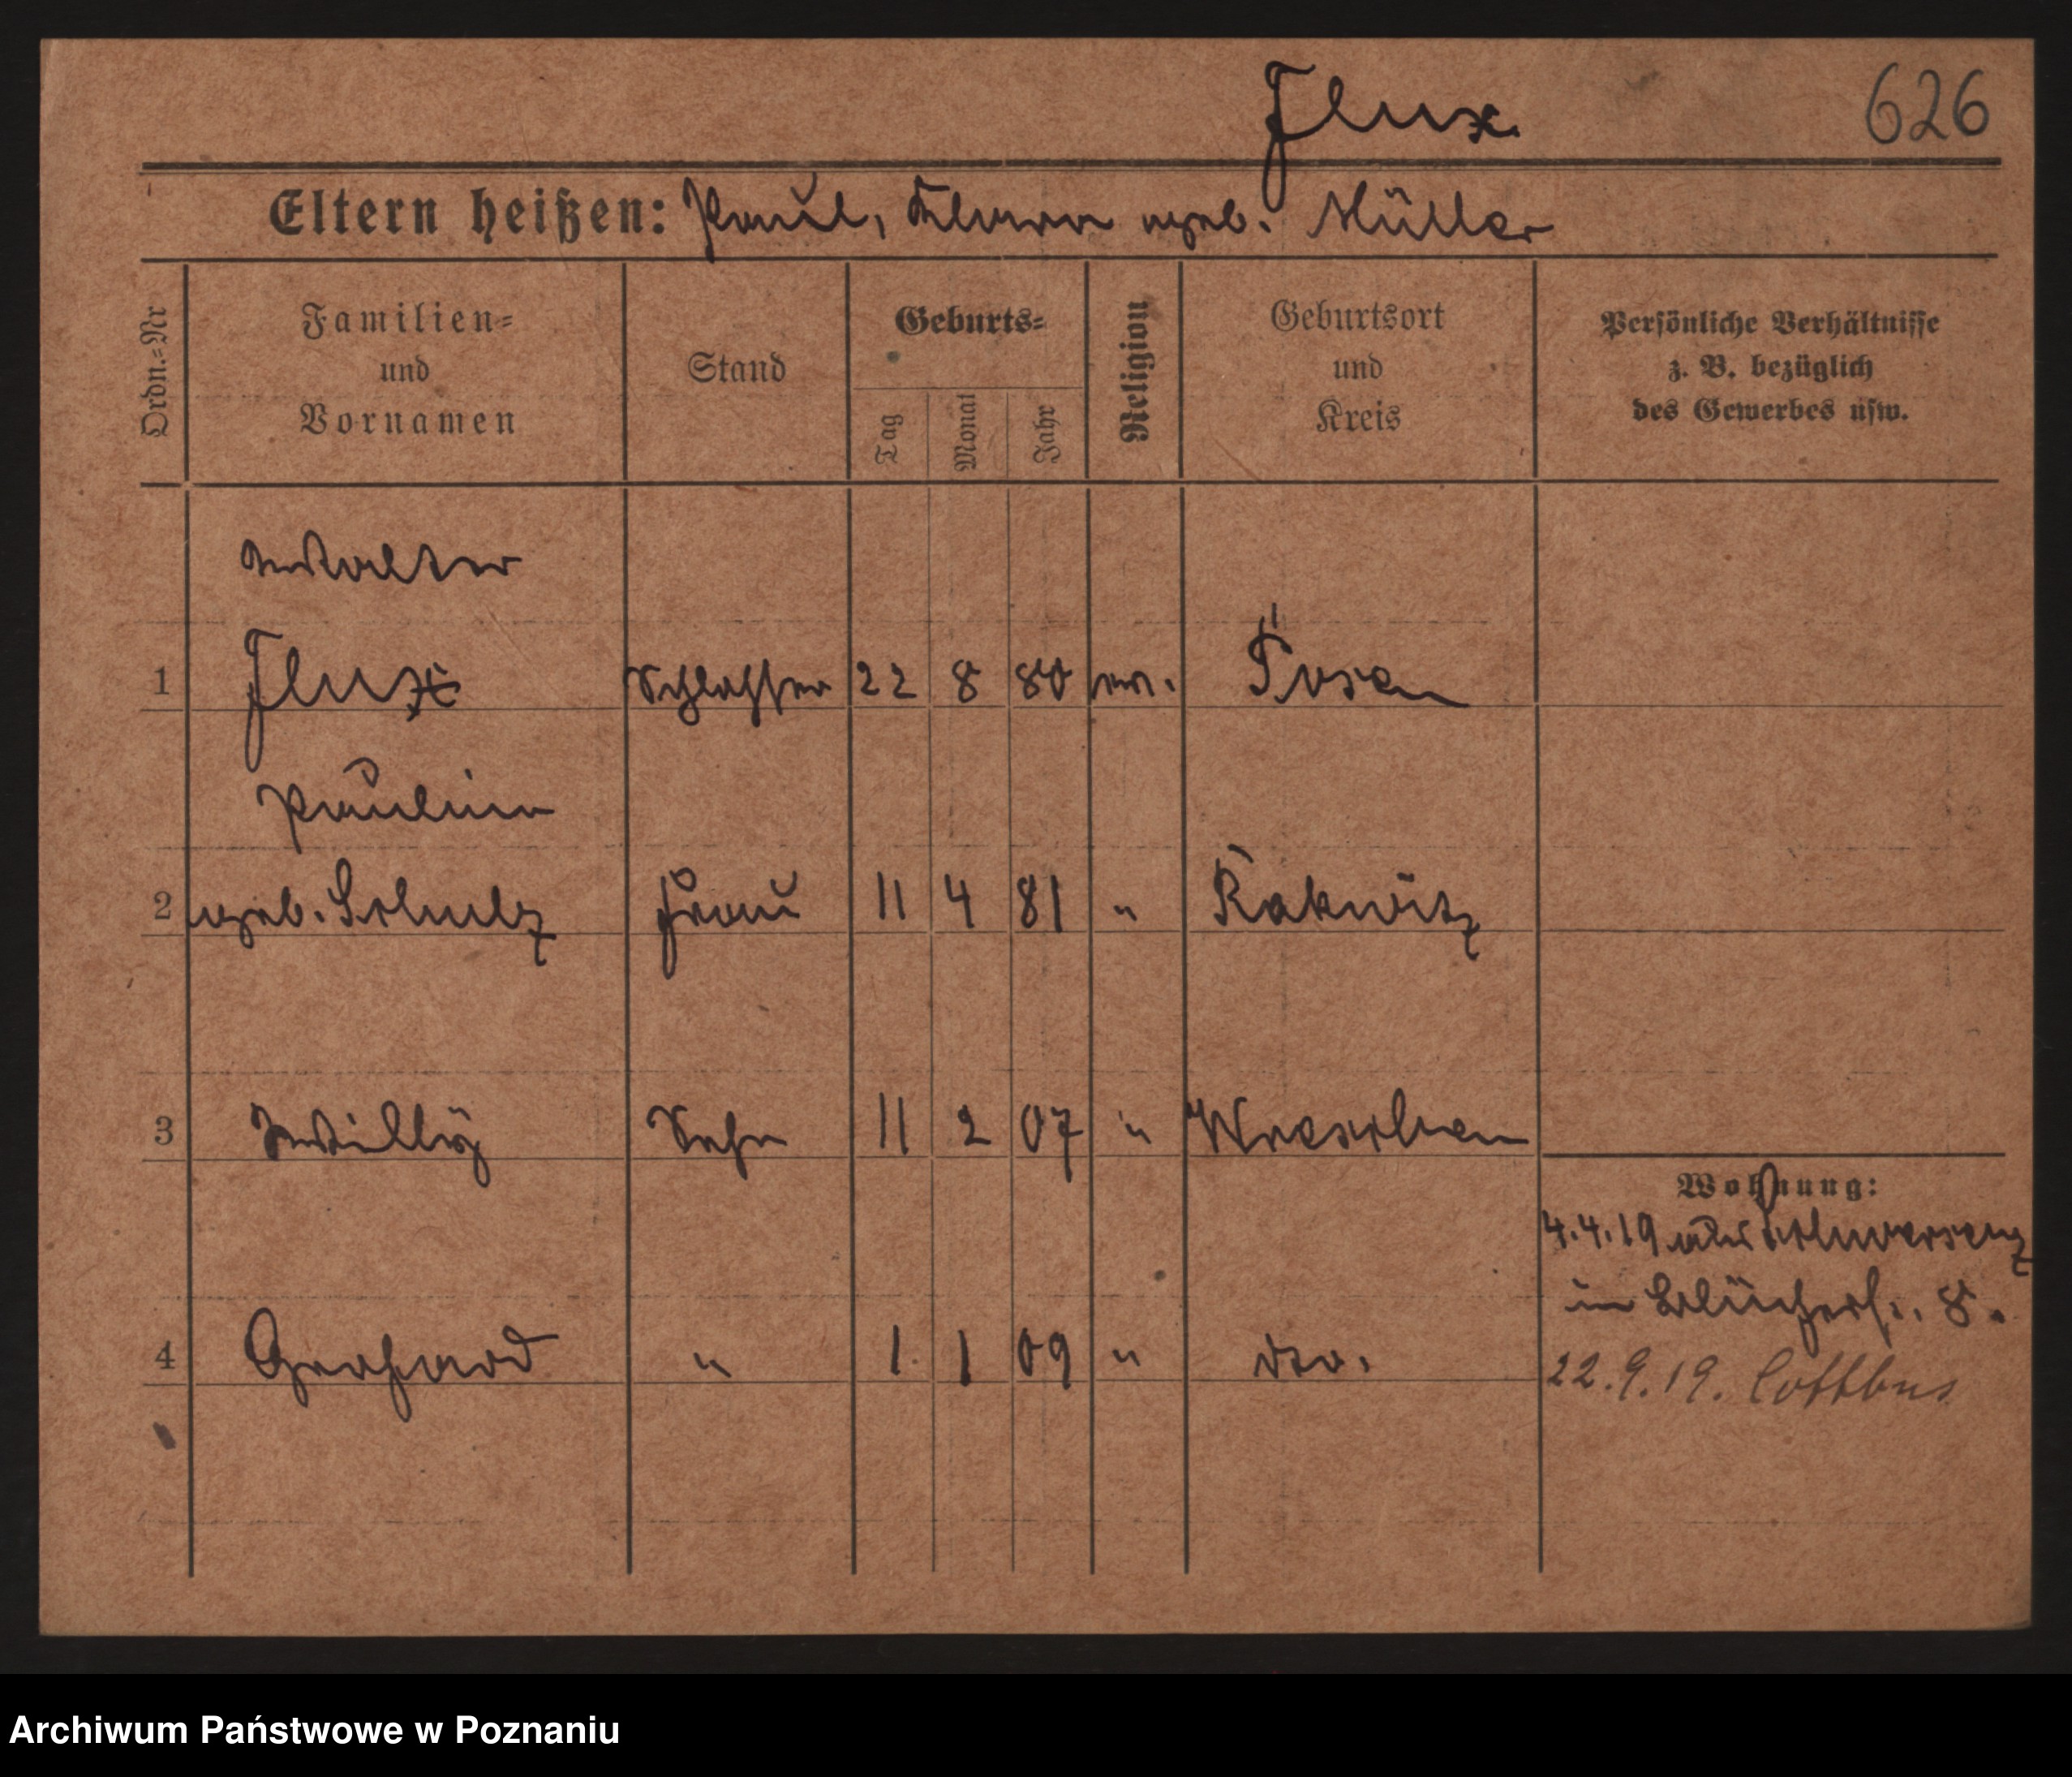 Flux.
626
Eltern heißen: Paul, Klara geb. Müller
Ordn.-Nr
Familien- und Vornamen
Stand
Geburts-
Tag
Monat
Jahr
Religion
Geburtsort und Kreis
Persönliche Verhältnisse
z. B. bezüglich
des Gewerbes usw.
Walter
1 Flux Schlosser 22 8 80 ev. Posen
Pauline
2 geb. Scholz Frau 11 4 81 " Rakwitz
3 Willy Sohn 11 2 07 " Wreschen
Wohnung:
4.4.19 aus Schwersenz
in Blücherstr. 8.
4 Gerhard " 1. 1 09 " dto.
22.9.19. Cottbus
Archiwum Państwowe w Poznaniu